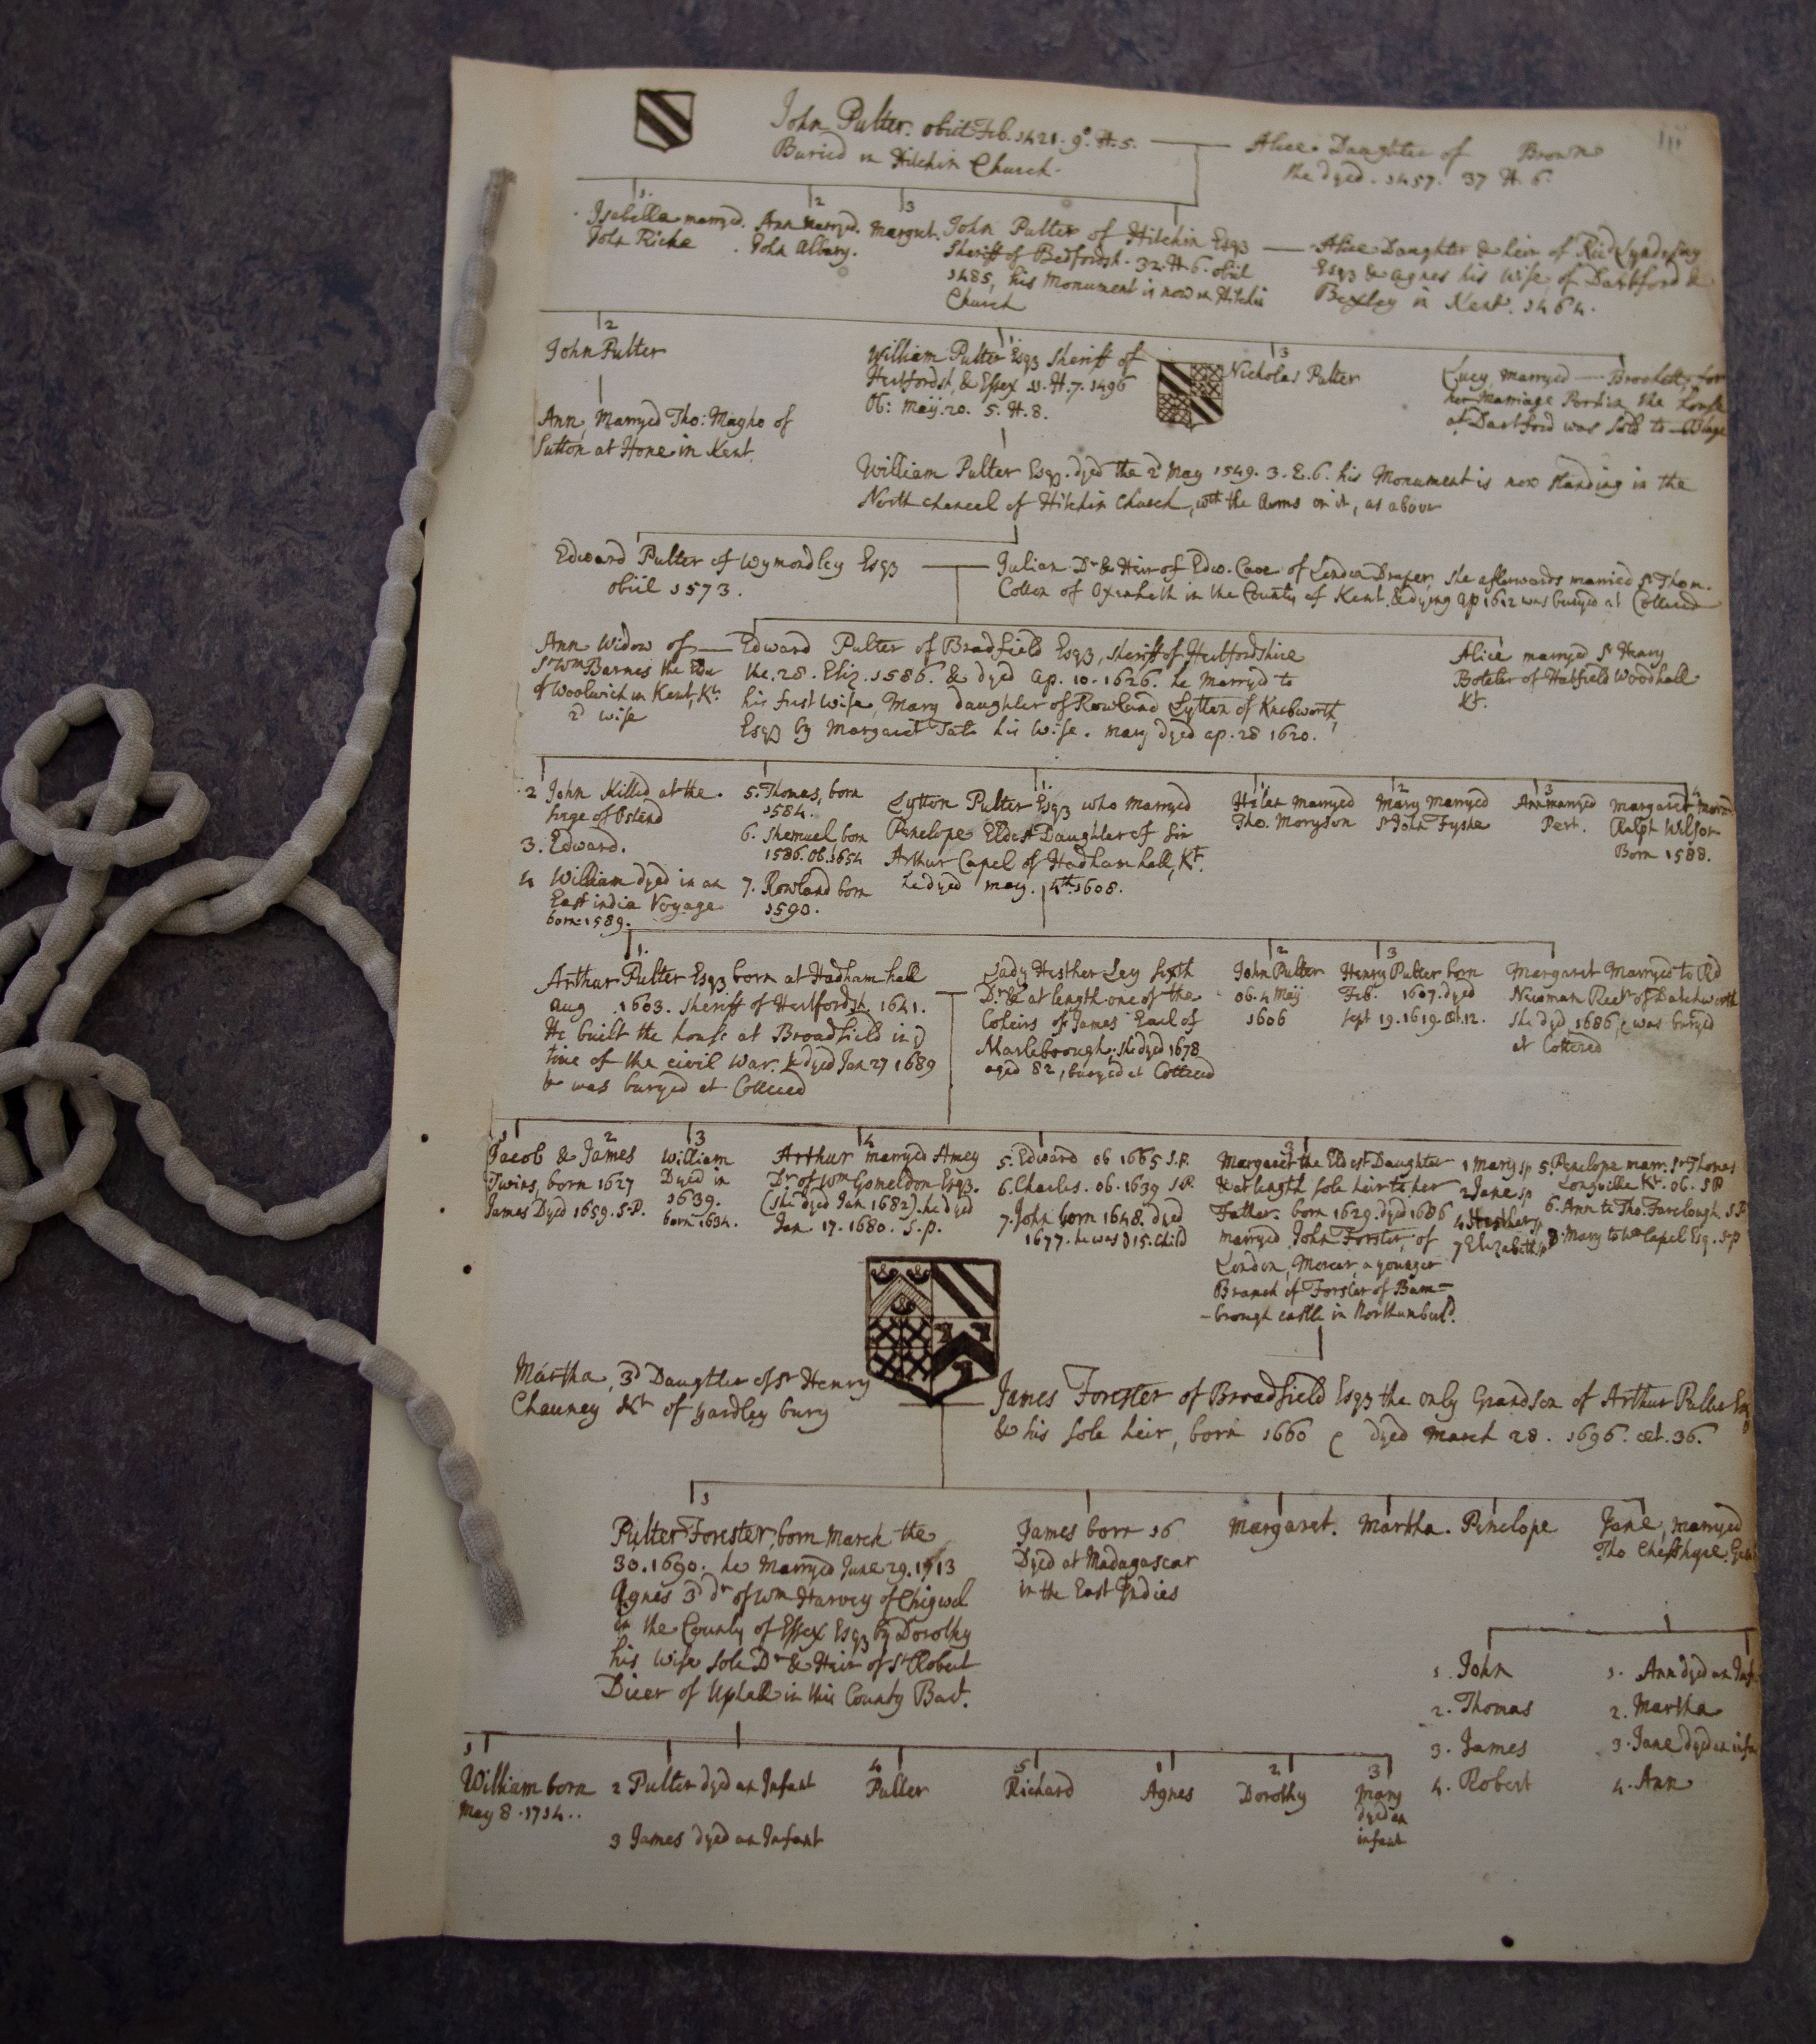 John Pulter. obiit Feb. 1421. 9o. H. 5.
Buried in Hitchin Church.
Alice Daughter of Brown
she dyed. 1457. 37 H. 6.
1.
Isabella marryed.
John Riche
2
Ann marryed.
John Albary.
3
Margret.
John Pulter of Hitchin Esq3
Sheriff of Bedfordsh. 32. H. 6. obiit
1485, his Monument is now in Hitchin
Church
Alice Daughter & heir of Ric
Esq3 & Agnes his Wife, of Dartford &
Bexley in Kent. 1464.
2
John Pulter
Ann, Marryed Tho: Magho of
Sutton at Hone in Kent.
1.
William Pulter Esq3 Sheriff of
Hertfordsh, & Essex 11. H. 7. 1496
Ob: Maij. 20. 5. H. 8.
3
Nicholas Pulter
Lucy, marryed — Brockett, for
her Marriage Portion the house
at Dartford was sold to
William Pulter Esq3. dyed the 2d May 1549. 3. E. 6. his Monument is now standing in the
North chancel of Hitchin Church, wth the Arms on it, as above
Edward Pulter of Wymondley Esq3
obiit 1573.
Julian Dr & Heir of Edw. Cave of London Draper, she afterwards married Sr Thom.
Cotton of Oxenheth in the County of Kent, & dying ap 1612 was buryed at Cottered
Ann Widow of
Sr Wm Barnes the Elder
of Woolwich in Kent, Kt.
2d wife
Edward Pulter of Bradfield Esq3, sheriff of Hertfordshire
the. 28. Eliz. 1586. & dyed Ap. 10. 1626. he Marryed to
his first Wife, Mary daughter of Rowland Lytton of Knebworth,
Esq3 by Margaret Tate his Wife. Mary dyed ap. 28 1620.
Alice marryed Sr Henry
Boteler of Hatfield Woodhall
Kt.
2 John Killed at the
siege of Ostend
3. Edward.
4 William dyed in an
East india Voyage
born 1589.
5. Thomas, born
1584.
6. Shemuel born
1586. Ob. 1654
7. Rowland born
1590.
1.
Lytton Pulter Esq3 who marryed
Penelope Eldest Daughter of Sir
Arthur Capel of Hadham hall, Kt.
he dyed may. 4th. 1608.
1
Helen Marryed
Tho. Moryson
2
Mary Marryed
Sr John Fyshe
3
Ann marryed
Pert.
4
Margaret marrd
Ralph Wilson
Born 1588.
1.
Arthur Pulter Esq3 born at Hadham hall
aug 1603. sheriff of Hertfordsh. 1641.
He built the house at Broadfield in ye
time of the civil War. he dyed Jan 27 1689
& was buryed at Cottered
Lady Hesther Ley sixth
Dr & at length one of the
Coheirs of James Earl of
Marleborough. she dyed 1678
aged 82, buryed at Cottered
2
John Pulter
Ob. 4 Maij
1606
3
Henry Pulter born
Feb. 1607. dyed
Sept 19. 1619. æt. 12.
Margaret Marryed to Rd
Newman Rectr of Datchworth
she dyed, 1686, & was buryed
at Cottered
1 2
Jacob & James
Twins, born 1627
James Dyed 1659. S.P.
3
William
Dyed in
1639.
born 1634.
4
Arthur marryed Amey
Dr of Wm Gomeldon Esq3.
(she dyed Jan 1682). he dyed
Jan. 17. 1680. S.p.
5. Edward ob 1665 S.P.
6. Charles. ob. 1639 S.P.
7. John born 1648. dyed
1677. he was ye 15. Child
3
Margaret the Eldest Daughter
& at length sole heir to her
Father. born 1629. dyed 1686
marryed John Forster, of
London, Mercer, a younger
Branch of Forster of Bam=
=brough castle in Northumberld.
1 Mary sp
2 Jane sp
4 Hesther sp
7 Elizabeth sp
5. Penelope marr. Sr Thomas
Longville Kt. ob. SP
6. Ann to Tho. Fareclough S.P.
8. Mary to Wm Capel Esq. S.P
Martha, 3d Daughter of Sr Henry
Chauncy Kt of yardley bury
James Forester of Broadfield Esq3 the only Grandson of Arthur Pulter Esq
& his sole heir, born 1660 & dyed March 28. 1696. æt. 36.
1
Pulter Forester, born March the
30. 1690. he Marryed June 29. 1713
Agnes 3d dr of Wm Harvey of Chigwel
in the County of Essex Esq3 by Dorothy
his Wife sole Dr & Heir of Sr Robert
Dicer of Uphall in this County Bart.
James born 16
Dyed at Madagascar
in the East Indies
Margaret.
Martha.
Penelope
Jane, marryed
Tho Cheshyre
1. John
2. Thomas
3. James
4. Robert
1. Ann dyed an Inf
2. Martha
3. Jane dyed an infa
4. Ann
1
William born
May 8. 1714..
2 Pulter dyed an Infant
3 James dyed an Infant
4
Pulter
5
Richard
1
Agnes
2
Dorothy
3
Mary
dyed an
infant